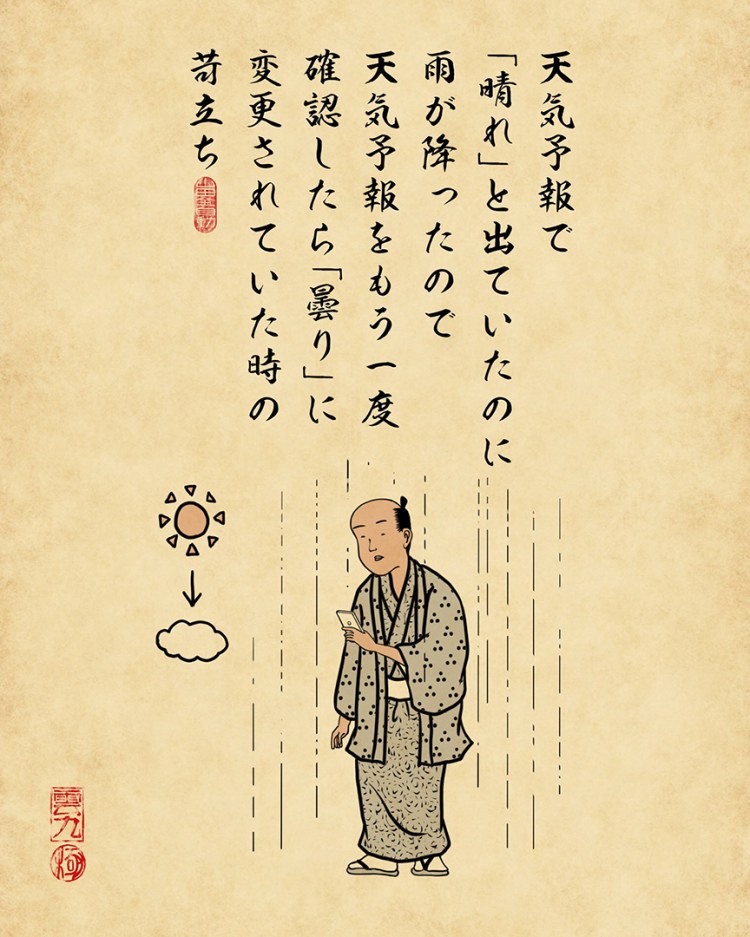 天気予報で
「晴れ」と出ていたのに
雨が降ったので
天気予報をもう一度
確認したら「曇り」に
変更されていた時の
苛立ち